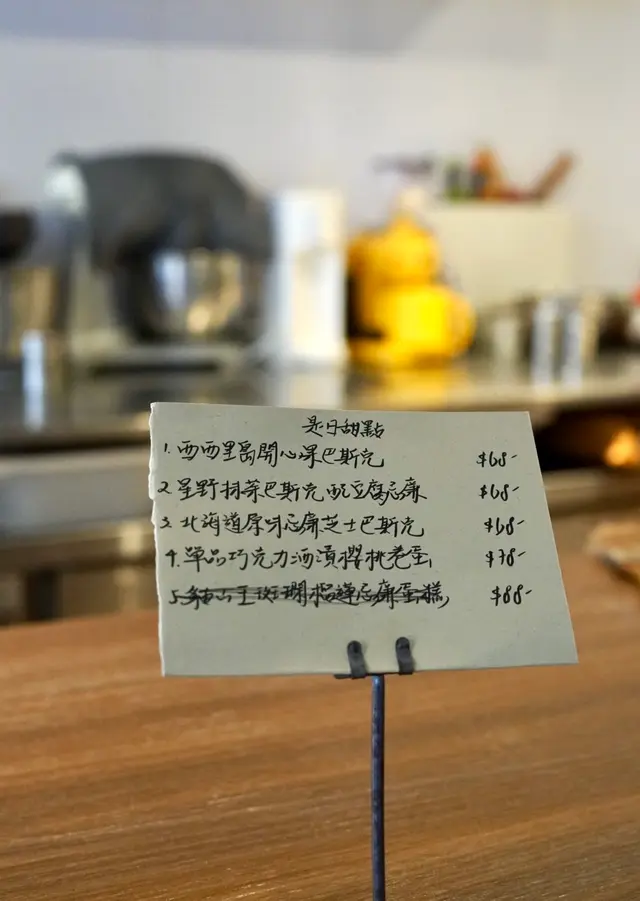 是日甜點
1. 西西里島開心果巴斯克 $68-
2. 星野抹茶巴斯克配豆腐忌廉 $68-
3. 北海道原味忌廉芝士巴斯克 $68-
4. 單品巧克力酒漬櫻桃卷蛋 $78-
5. 貓山王斑斕榴蓮忌廉蛋糕 $88-